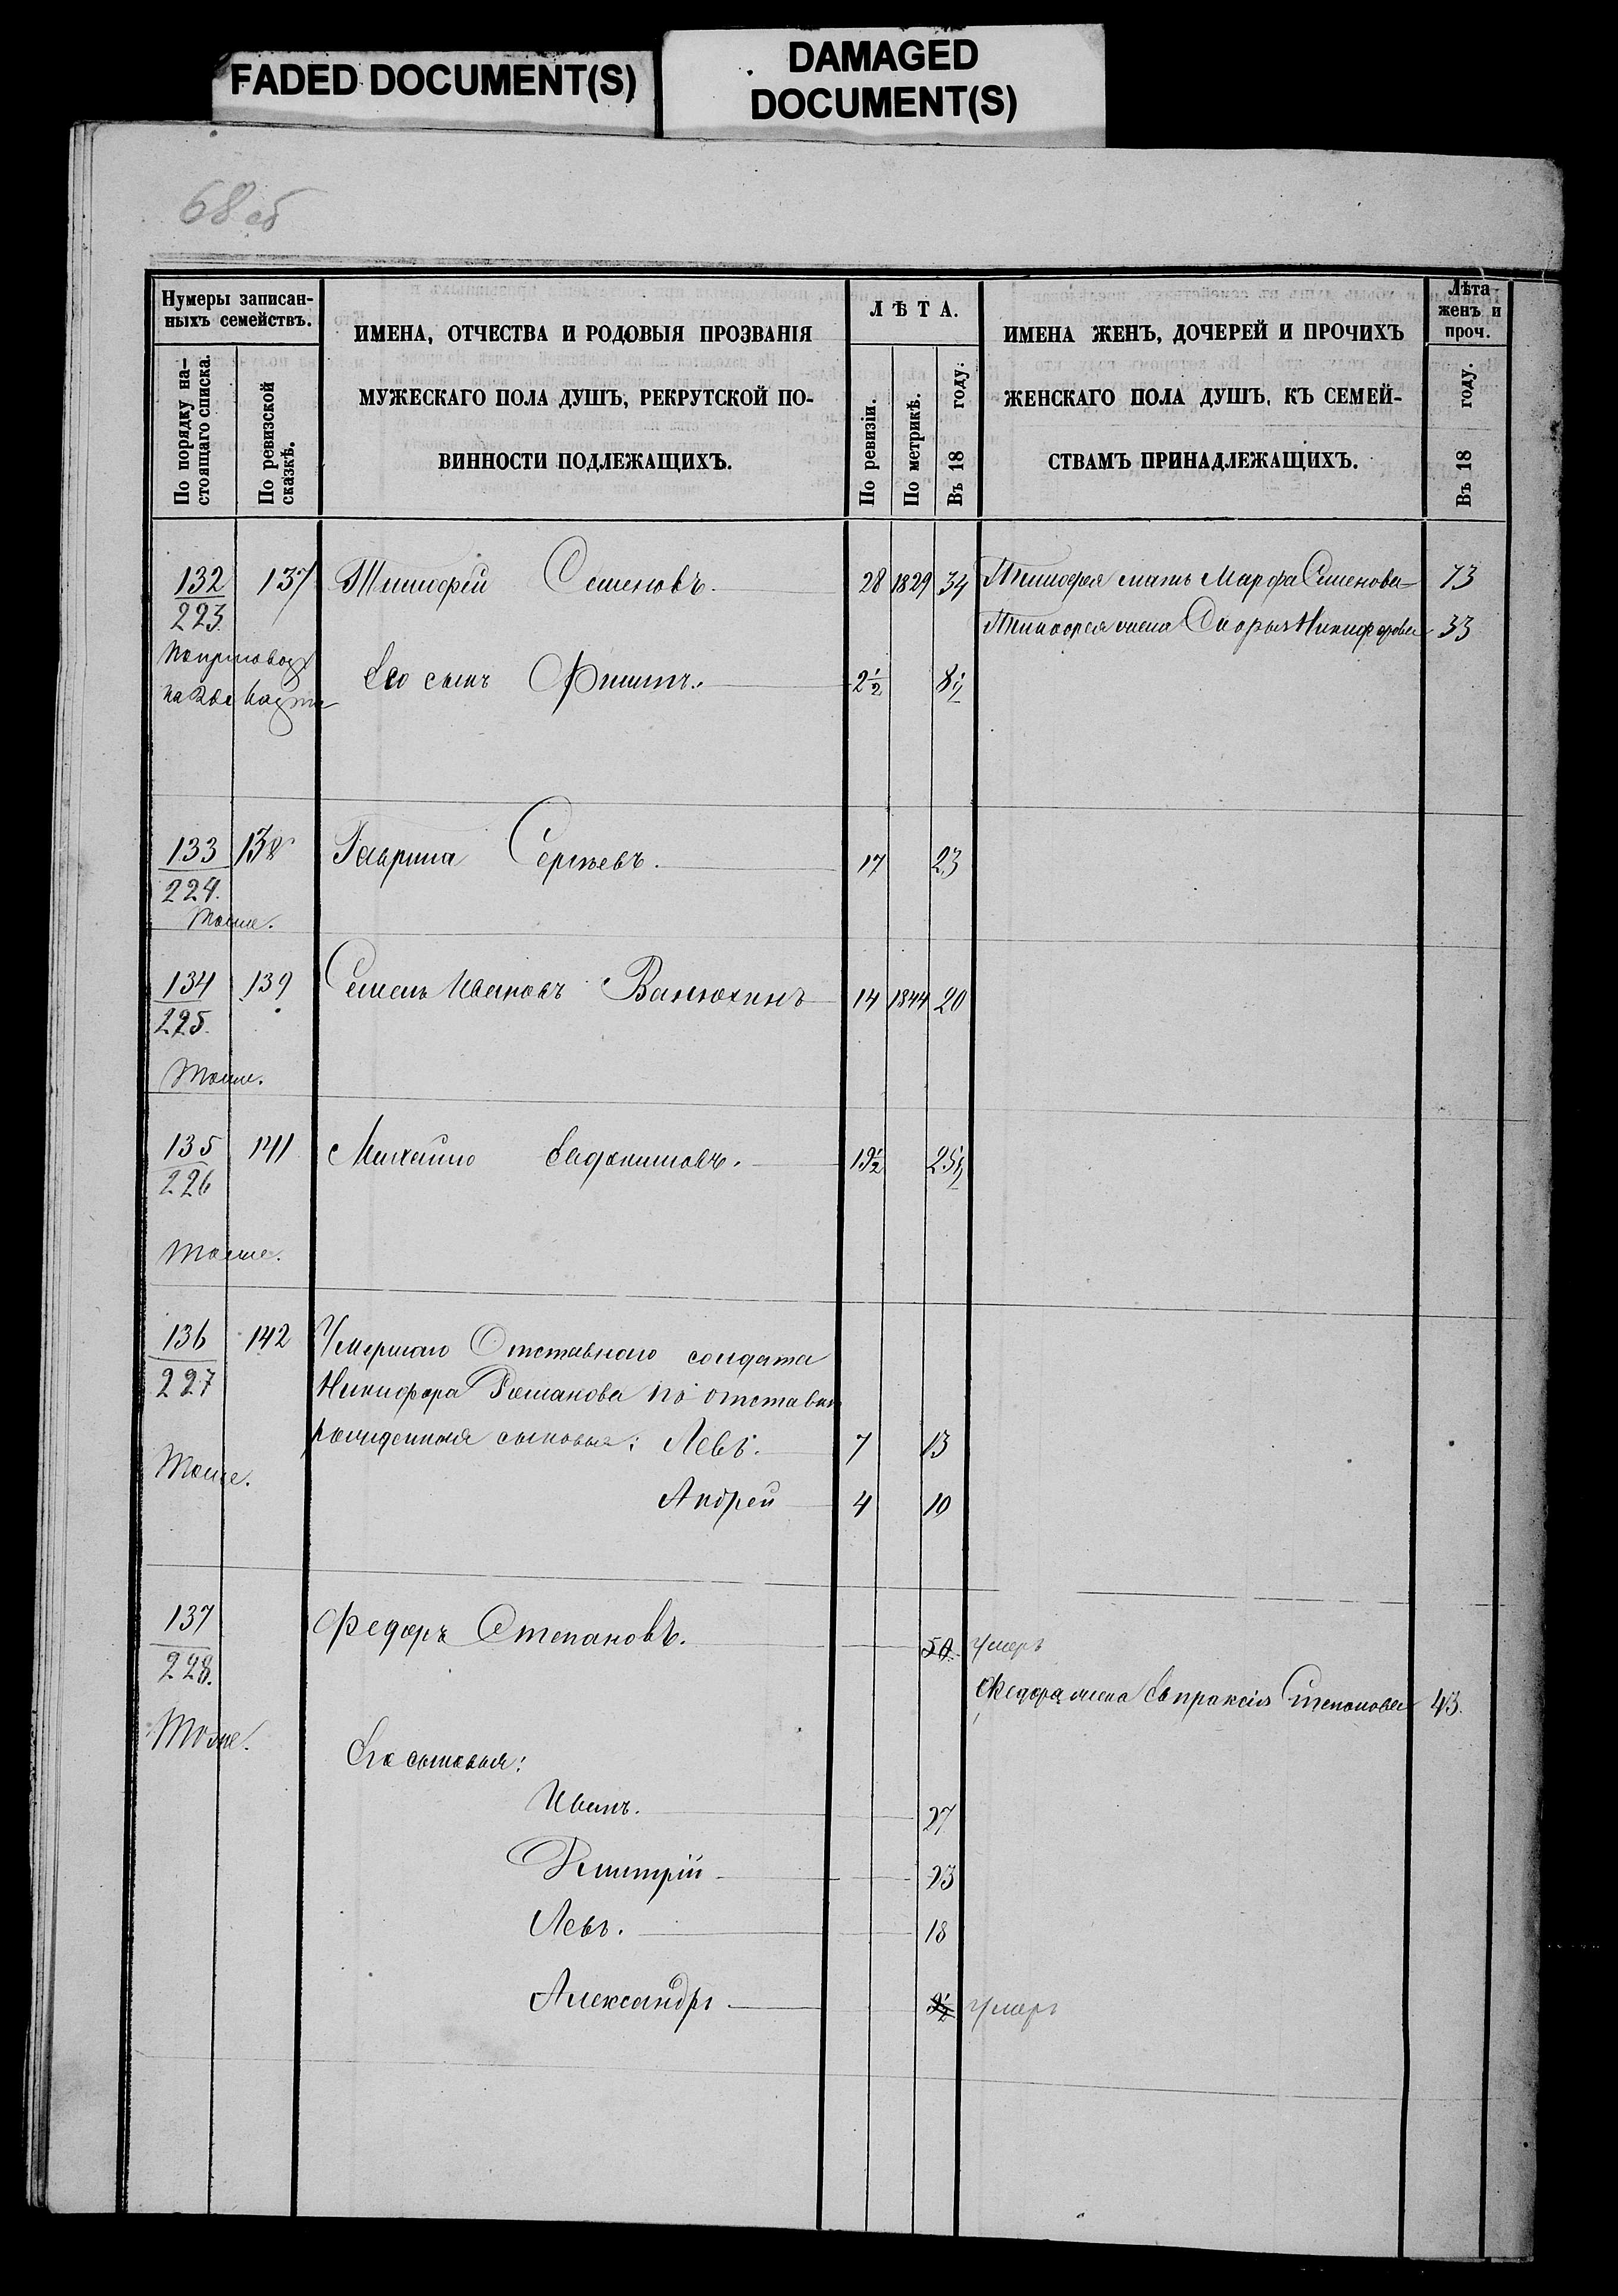 FADED DOCUMENT(S)
DAMAGED
DOCUMENT(S)
68 об
Нумеры записан-
ныхъ семействъ.
По порядку на-
стоящаго списка.
По ревизской
сказкѣ.
ИМЕНА, ОТЧЕСТВА И РОДОВЫЯ ПРОЗВАНІЯ
МУЖЕСКАГО ПОЛА ДУШЪ, РЕКРУТСКОЙ ПО-
ВИННОСТИ ПОДЛЕЖАЩИХЪ.
ЛѢТА.
По ревизіи.
По метрикѣ.
Въ 18 году.
ИМЕНА ЖЕНЪ, ДОЧЕРЕЙ И ПРОЧИХЪ
ЖЕНСКАГО ПОЛА ДУШЪ, КЪ СЕМЕЙ-
СТВАМЪ ПРИНАДЛЕЖАЩИХЪ.
Лѣта
женъ и
проч.
Въ 18 году.
132 137 Тимофей Семеновъ. 28 1829 34 Тимофея мать Марфа Семенова 73
223 Тимофея жена Никифорова 33
Его сынъ Филипъ. 2½ 8½
133 138 Гаврила Сергѣевъ. 17 23
224.
Тоже.
134 139 Семенъ Ивановъ Ванюхинъ 14 1844 20
225.
Тоже.
135 141 Михайло Евдокимовъ. 19½ 25½
226
Тоже.
136 142 Умершаго Отставнаго солдата
227 Никифора Романова по отставки
рожденныя сыновья: Левъ. 7 13
Тоже.
Андрей 4 10
137 Федоръ Степановъ. 50 умеръ
228. Федора жена Евпраксія Степанова 43.
Тоже.
Его сыновья:
Иванъ. 27
Дмитрій 23
Левъ. 18
Александръ умеръ